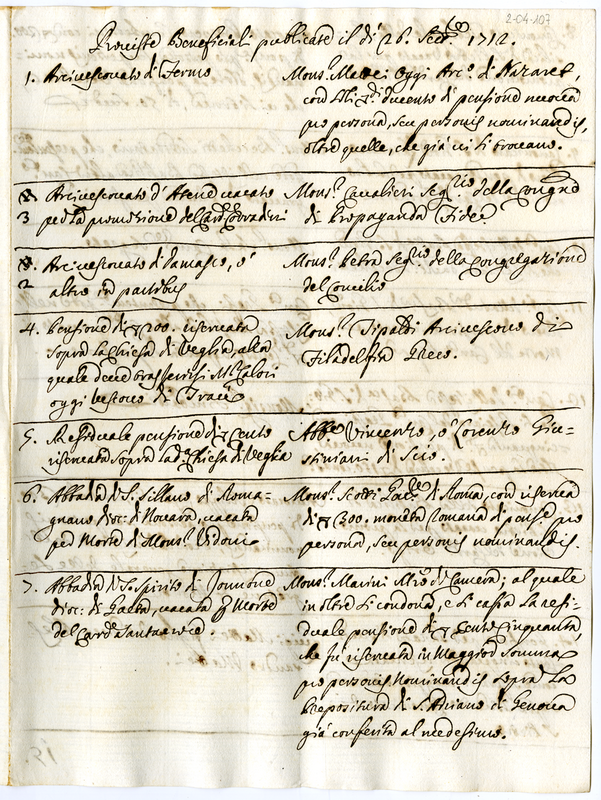 2-04-107
Proviste Beneficiali publicate il dì 26. Sett.bre 1712.
1. Arcivescovato di Fermo
Mons.r Mattei Oggi Arc.o di Nazaret,
con di ducento di pensione nuova
pro persona, seu personis nominandis,
oltre quelle, che già vi si trovano.
3 Arcivescovato d'Atene vacato
per la promozione del Card.
Mons.r Cavalieri Seg.rio della Congne
di Propaganda Fide.
2 Arcivescovato di Damasco, o'
altro in partibus
Mons.r Petra Seg.rio della Congregazione
del Concilio
4. Pensione di 200. riservata
sopra la Chiesa di Veglia, alla
quale deve
oggi Vescovo di Traù
Mons.r Tipaldi Arcivescovo di
Filadelfia Greco.
5. Residuale pensione di Cento
riservata sopra la d.a Chiesa di Veglia
Abb.e Vincenzo, o' Lorenzo Giu-
stiniani di Scio.
6. Abbadia di S. Sillano di Roma-
gnano dioc: di Novara, vacata
per Morte di Mons.r Vidoni
Mons.r Scotti Gov.re di Roma, con riserva
di 300. moneta Romana di pens.e pro
persona, seu personis nominandis.
7. Abbadia di S. Spirito di
dioc: di Gaeta, vacata per Morte
del Card.
Mons.r Marini M.ro di Camera; al quale
inoltre si condona, e si cassa la resi-
duale pensione di Cento Cinquanta,
che fù riservata in Maggior Somma
pro personis Nominandis sopra la
Prepositura di S. Adriano di Genova
già conferita al medesimo.